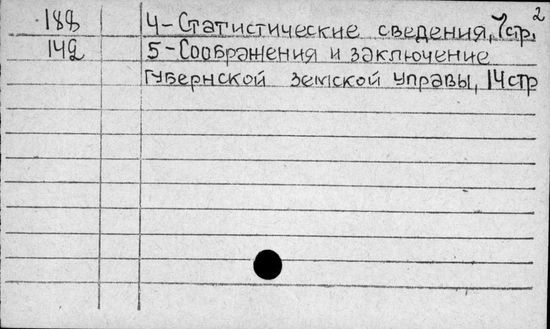 2
188 4-Статистические сведения, 7стр.
142 5-Соображения и заключение
Губернской земской управы, 14стр